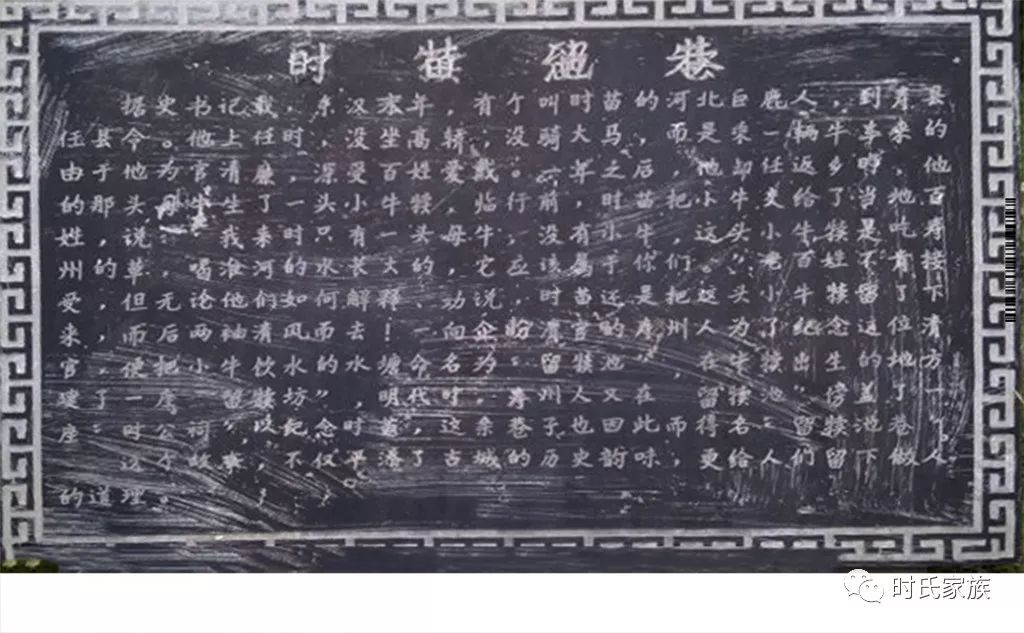 时苗 巷
据史书记载，东汉末年，有个叫时苗的河北巨鹿人，到寿县
任县令。他上任时，没坐高轿，没骑大马，而是乘一辆牛车来的
由于他为官清廉，深受百姓爱戴。一年之后，他卸任返乡时，他
的那头母牛生了一头小牛犊，临行前，时苗把小牛交给了当地百
姓，说：“我来时只有一头母牛，没有小牛，这头小牛犊是吃寿
州的草，喝淮河的水长大的，它应该属于你们。”老百姓不肯接
受，但无论他们如何解释、劝说，时苗还是把这头小牛犊留了下
来，而后两袖清风而去！一向企盼清官的寿州人为了纪念这位清
官，便把小牛饮水的水塘命名为“留犊池”，在牛犊出生的地方
建了一座“留犊坊”，明代时，寿州人又在“留犊池”傍盖了一
座“时公祠”，以纪念时苗，这条巷子也因此而得名“留犊池巷”。
这个故事，不仅平添了古城的历史韵味，更给人们留下做人
的道理。
时氏家族